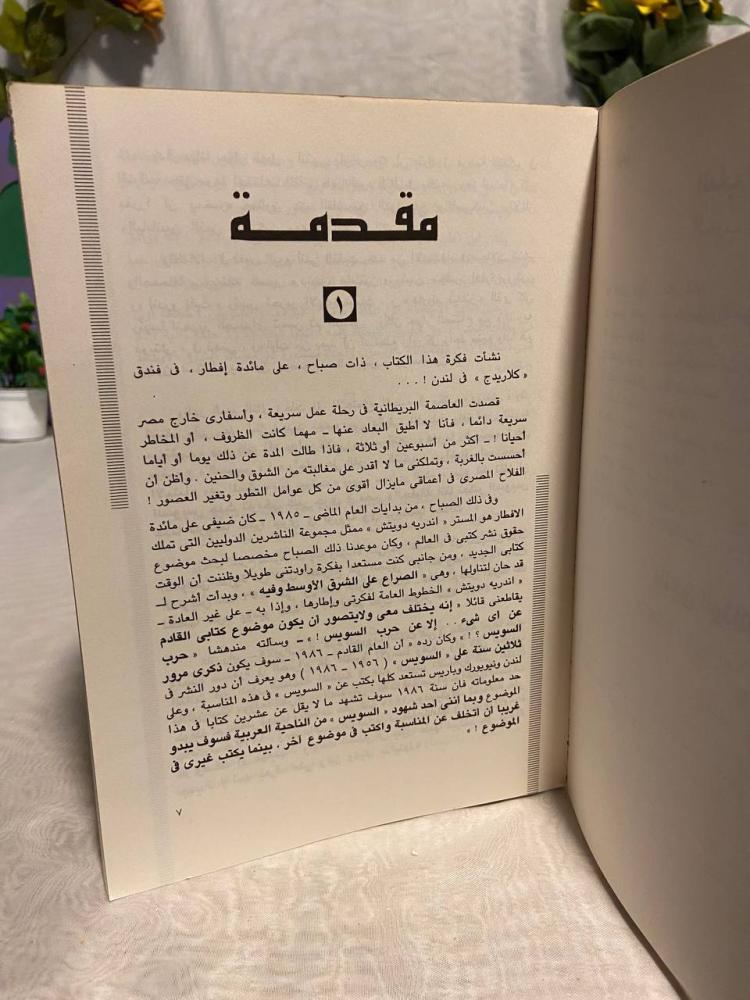 مقدمة
١
نشأت فكرة هذا الكتاب ، ذات صباح ، على مائدة إفطار ، فى فندق
« كلاريدج » فى لندن ! ...
قصدت العاصمة البريطانية فى رحلة عمل سريعة ، وأسفارى خارج مصر
سريعة دائما ، فأنا لا أطيق البعاد عنها ـ مهما كانت الظروف ، أو المخاطر
أحيانا ! ـ أكثر من أسبوعين أو ثلاثة ، فاذا طالت المدة عن ذلك يوما أو أياما
أحسست بالغربة ، وتملكنى ما لا أقدر على مغالبته من الشوق والحنين . وأظن أن
الفلاح المصرى فى أعماقى مايزال أقوى من كل عوامل التطور وتغير العصور !
وفى ذلك الصباح ، من بدايات العام الماضى ـ ١٩٨٥ ـ كان ضيفى على مائدة
الافطار هو المستر « اندريه دويتش » ممثل مجموعة الناشرين الدوليين التى تملك
حقوق نشر كتبى فى العالم ، وكان موعدنا ذلك الصباح مخصصا لبحث موضوع
كتابى الجديد ، ومن جانبى كنت مستعدا بفكرة راودتنى طويلا وظننت أن الوقت
قد حان لتناولها ، وهى « الصراع على الشرق الأوسط وفيه » ، وبدأت أشرح لـ
« اندريه دويتش » الخطوط العامة لفكرتى وإطارها ، وإذا به ـ على غير العادة ـ
يقاطعنى قائلا « إنه يختلف معى ولايتصور أن يكون موضوع كتابى القادم
عن اى شىء .. إلا عن حرب السويس ! » ـ وسألته مندهشا « حرب
السويس ؟ ! » وكان رده « أن العام القادم ـ ١٩٨٦ ـ سوف يكون ذكرى مرور
ثلاثين سنة على « السويس » ( ١٩٥٦ ـ ١٩٨٦ ) وهو يعرف أن دور النشر فى
لندن ونيويورك وباريس تستعد كلها بكتب عن « السويس » فى هذه المناسبة ، وعلى
حد معلوماته فان سنة ١٩٨٦ سوف تشهد ما لا يقل عن عشرين كتابا فى هذا
الموضوع وبما اننى أحد شهود « السويس » من الناحية العربية فسوف يبدو
غريبا أن اتخلف عن المناسبة واكتب فى موضوع آخر ، بينما يكتب غيرى فى
الموضوع ! »
٧